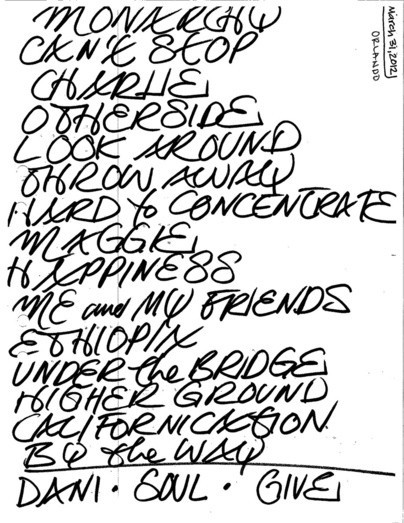 March 31, 2012
ORLANDO
MONARCHY
CAN'T STOP
CHARLIE
OTHERSIDE
LOOK AROUND
THROW AWAY
HARD to CONCENTRATE
MAGGIE
HAPPINESS
ME and MY FRIENDS
ETHIOPIA
UNDER the BRIDGE
HIGHER GROUND
CALIFORNICATION
BY the WAY
DANI · SOUL · GIVE